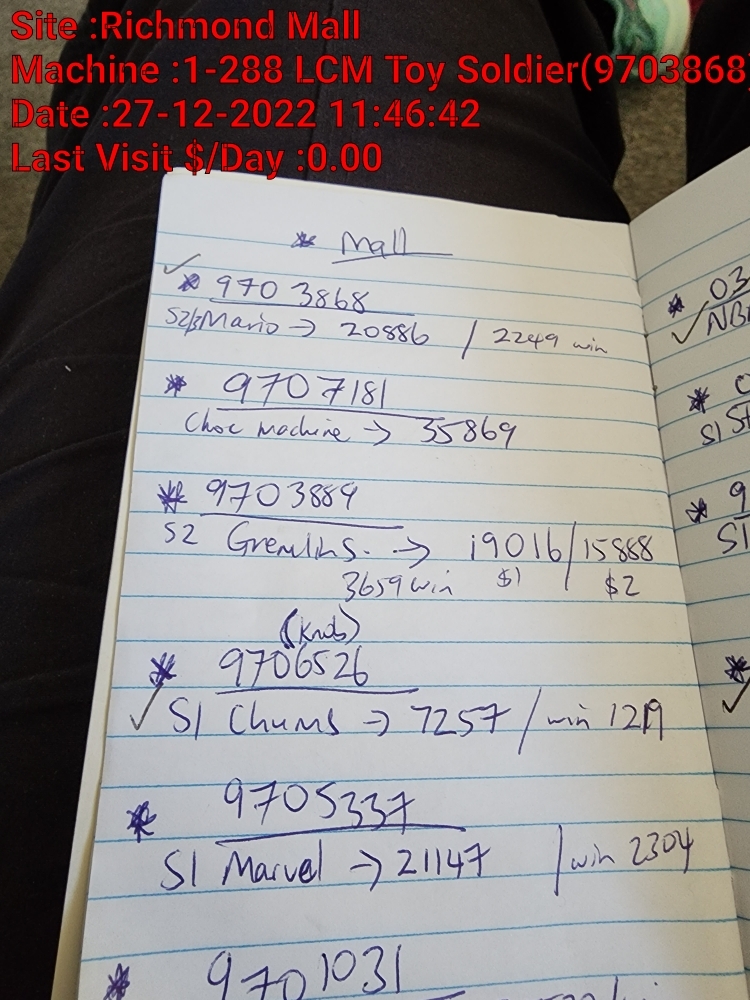 Site :Richmond Mall
Machine :1-288 LCM Toy Soldier(9703868)
Date :27-12-2022 11:46:42
Last Visit $/Day :0.00
* Mall
✓ * 9703868
Mario → 20886 / 2249 win
* 9707181
Choc Machine → 35869
* 9703889
S2 Gremlins. → 19016/15888
3659 win $1 $2
(Knob)
* 9706526
✓ S1 Chums → 7257 / win
* 9705337
S1 Marvel → 21147 / win 2304
* 9701031
* 03
✓
*
S1
* 9
S1
*
✓